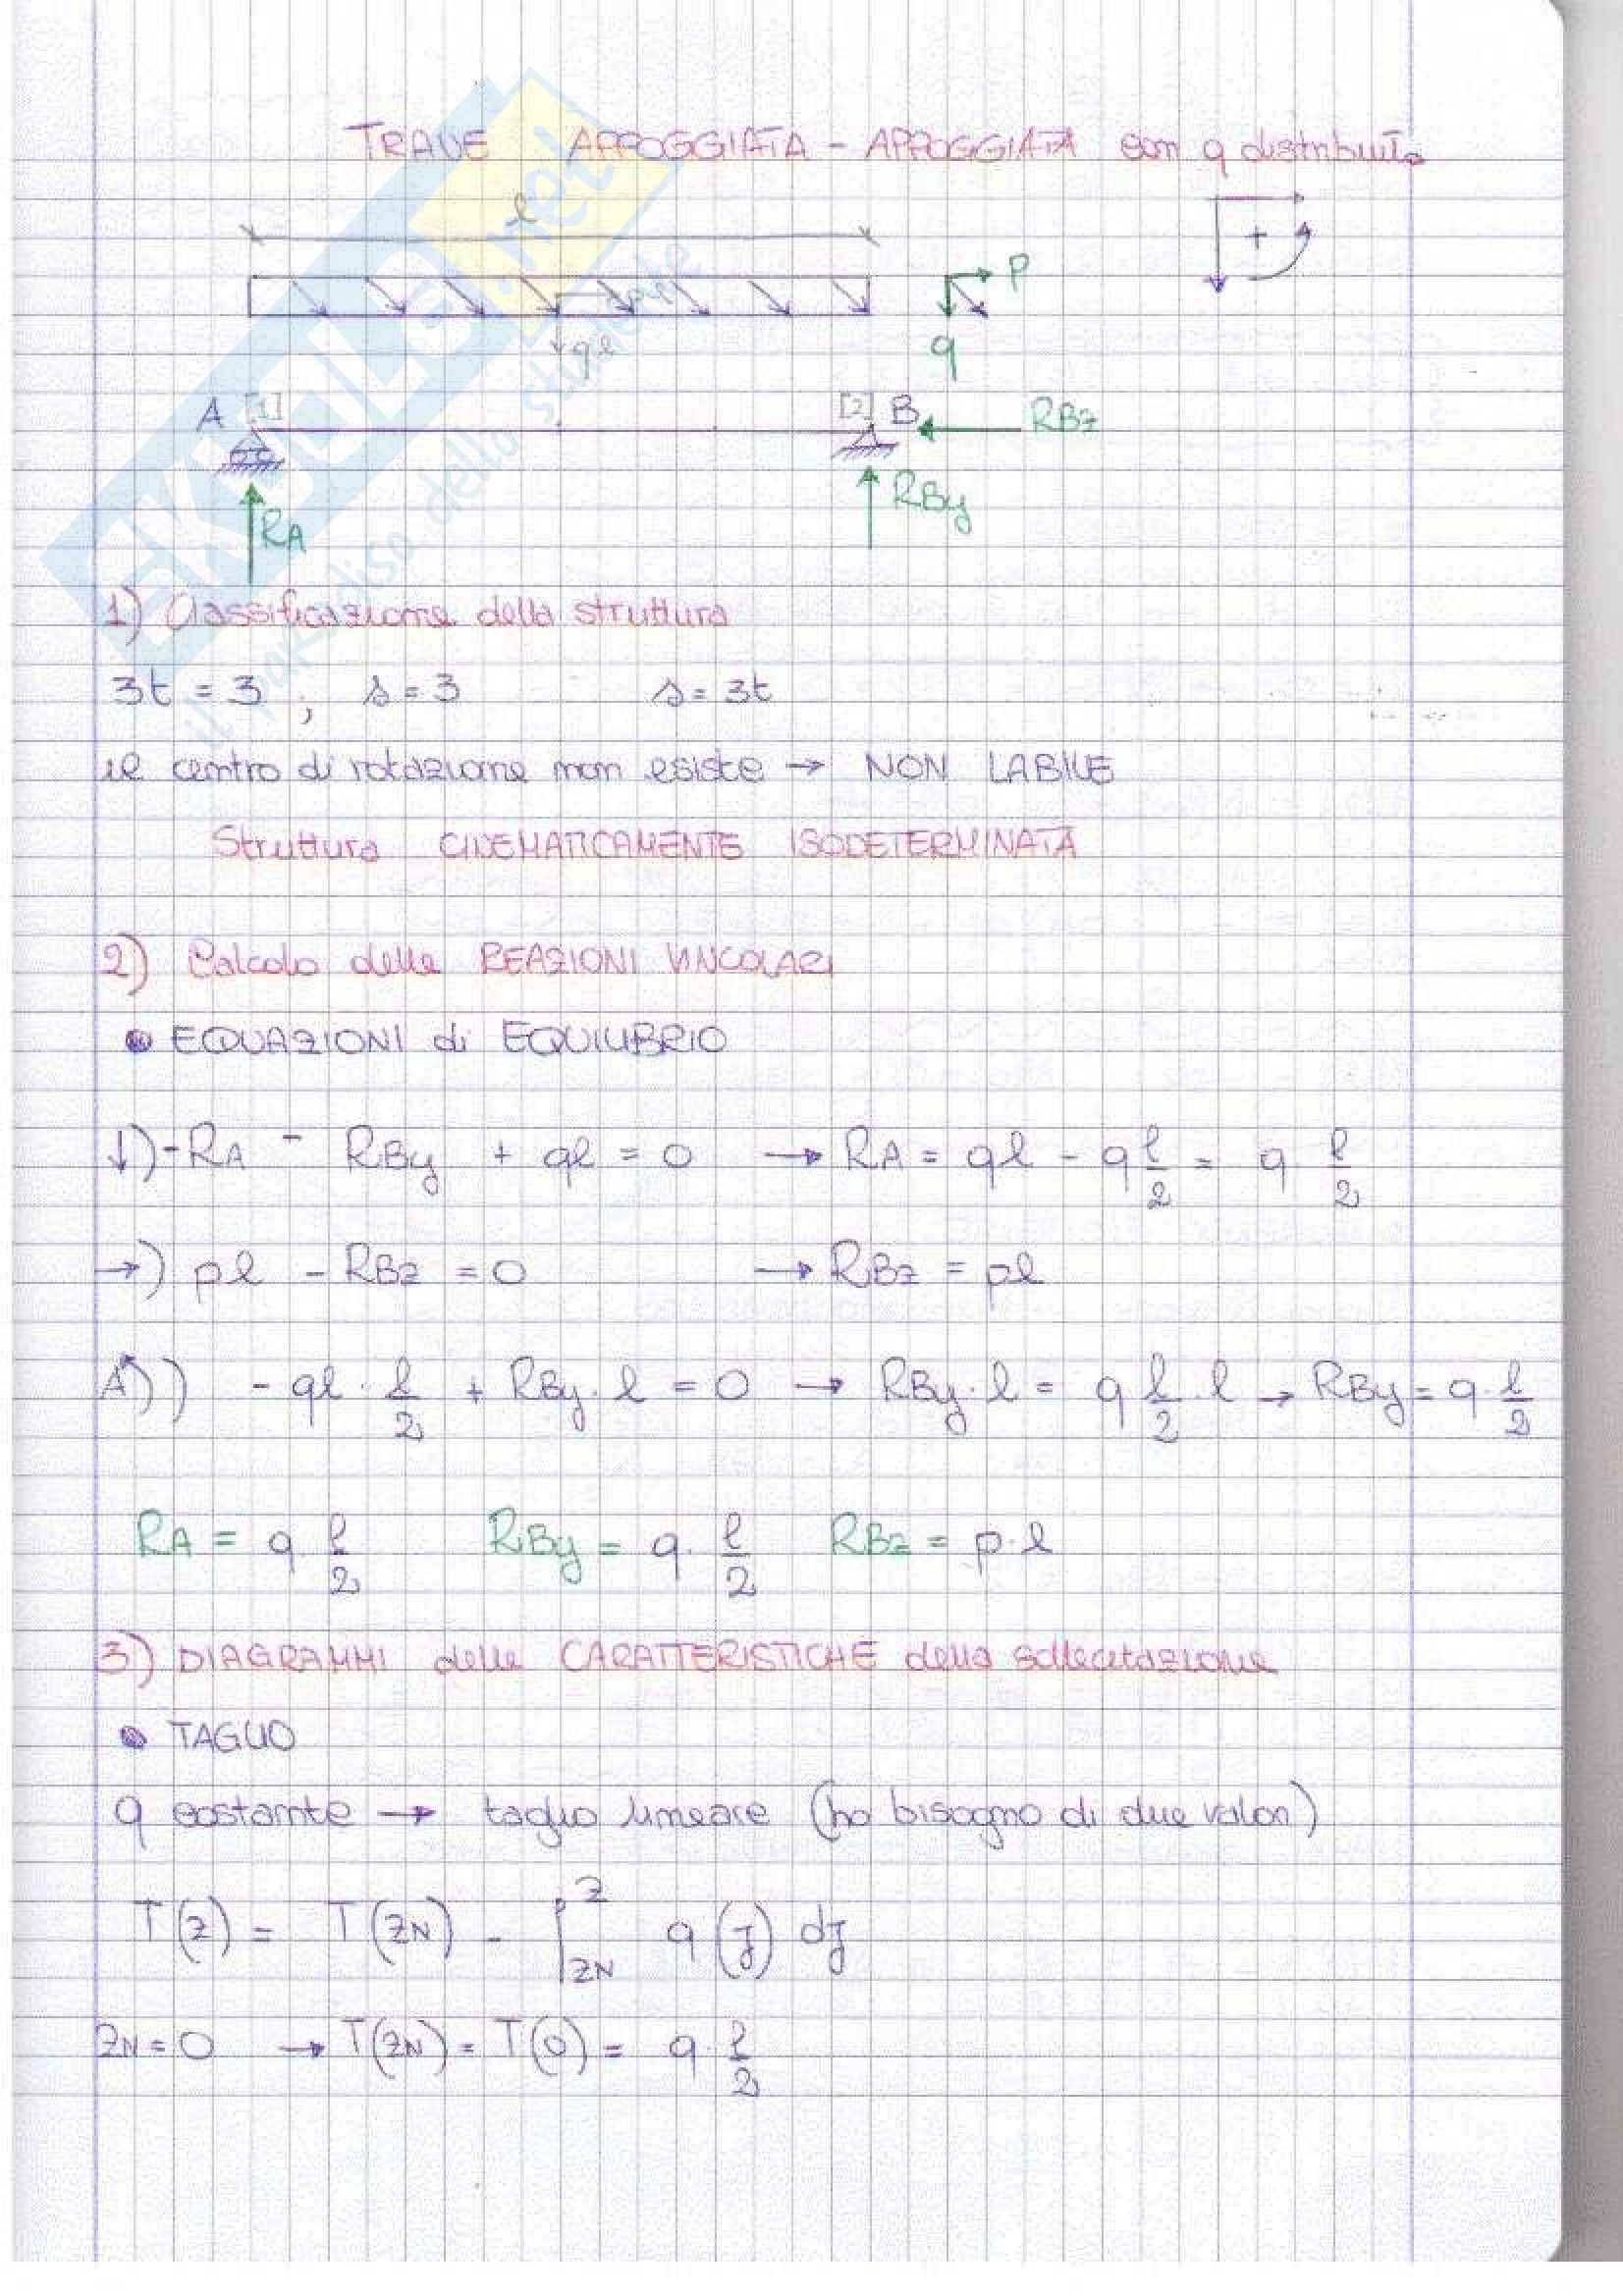 TRAVE APPOGGIATA - APPOGGIATA con q distribuito
l
+
P
ql
q
A [1]
[2] B
RBz
RBy
RA
1) Classificazione della struttura
3t = 3 ; s = 3 s = 3t
il centro di rotazione non esiste → NON LABILE
Struttura CINEMATICAMENTE ISODETERMINATA
2) Calcolo delle REAZIONI VINCOLARI
• EQUAZIONI di EQUILIBRIO
↓) -RA - RBy + ql = 0 → RA = ql - q l/2 = q l/2
→) pl - RBz = 0 → RBz = pl
A)) - ql · l/2 + RBy · l = 0 → RBy · l = q l/2 · l → RBy = q · l/2
RA = q · l/2 RBy = q · l/2 RBz = p · l
3) DIAGRAMMI delle CARATTERISTICHE della sollecitazione
• TAGLIO
q costante → taglio lineare (ho bisogno di due valori)
T(z) = T(zN) - ∫ zN z q(j) dj
zN = 0 → T(zN) = T(0) = q · l/2
SKUOLA.net
il paradiso dello studente